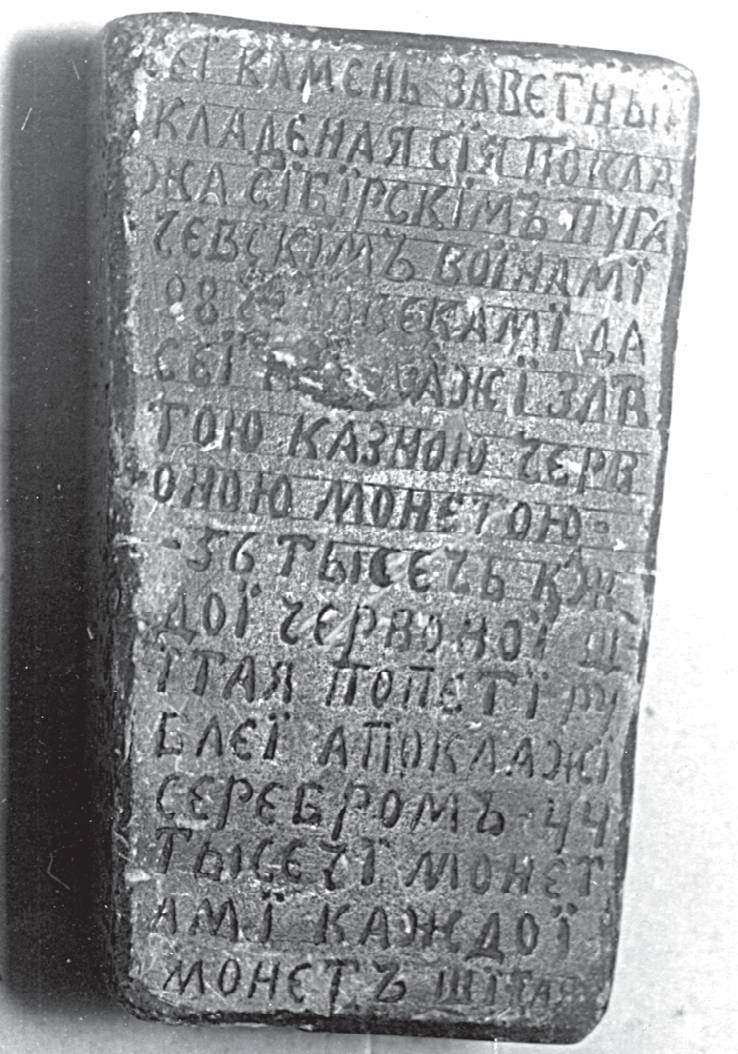 СЕЇ КАМЕНЬ ЗАВЕТНЫ
КЛАДЕНАЯ СЇЯ ПОКЛА
ЖА СЇБЇРСКЇМЪ ПУГА
ЧЕВСКЇМЪ ВОЇНАМЇ
ДА
ЗЛВ
ТОЮ КАЗНОЮ ЧЕРВ
ОНОЮ МОНЕТОЮ-
-56 ТЫСЕЧЬ КЖ
ДОЇ ЧЕРВОНОЇ Щ
ЇТАЯ ПОПЕТЇ РУ
БЛЕЇ АПОКЛАЖЇ
СЕРЕБРОМЪ-44
ТЫСЕЧЇ МОНЕТ
АМЇ КАЖДОЇ
МОНЕТЪ ЩЇТАЯ